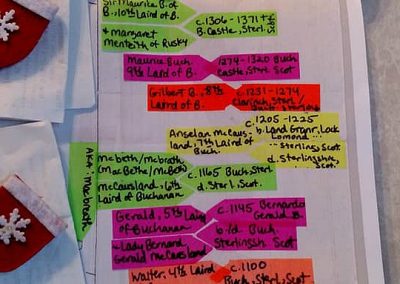 Sir Maurice B. of
B., 10th Laird of B.
& Margaret
Menteith of Rusky
c. 1306 - 1371 +
B. Castle, Sterl.
Maurice Buch.
9th Laird of B.
1274-1320 Buch
Castle, Sterl Scot
Gilbert B., 8th
Laird of B.
c. 1231 - 1274
Clarinch, Sterl /
Anselan McCaus-
land, 7th Laird of
Buch.
c. 1205 - 1225
b. Land Grant, Lock
Lomond
Sterling, Scot
d. Sterlingshire,
Scot.
AKA: macbeath
McBeth/McBroth
(MacBethe/McBeth)
McCausland, 6th
Laird of Buchanan
c. 1165 Buch, Sterl
d. Sterl, Scot.
Gerald, 5th Laird
of Buchanan
& Lady Bernard
Gerald McCausland
c. 1145 Bernardo
Gerald B.
b/d. Buch
Sterlingsh Scot
Walter, 4th Laird
c. 1100
Buch, Sterl, Scot.